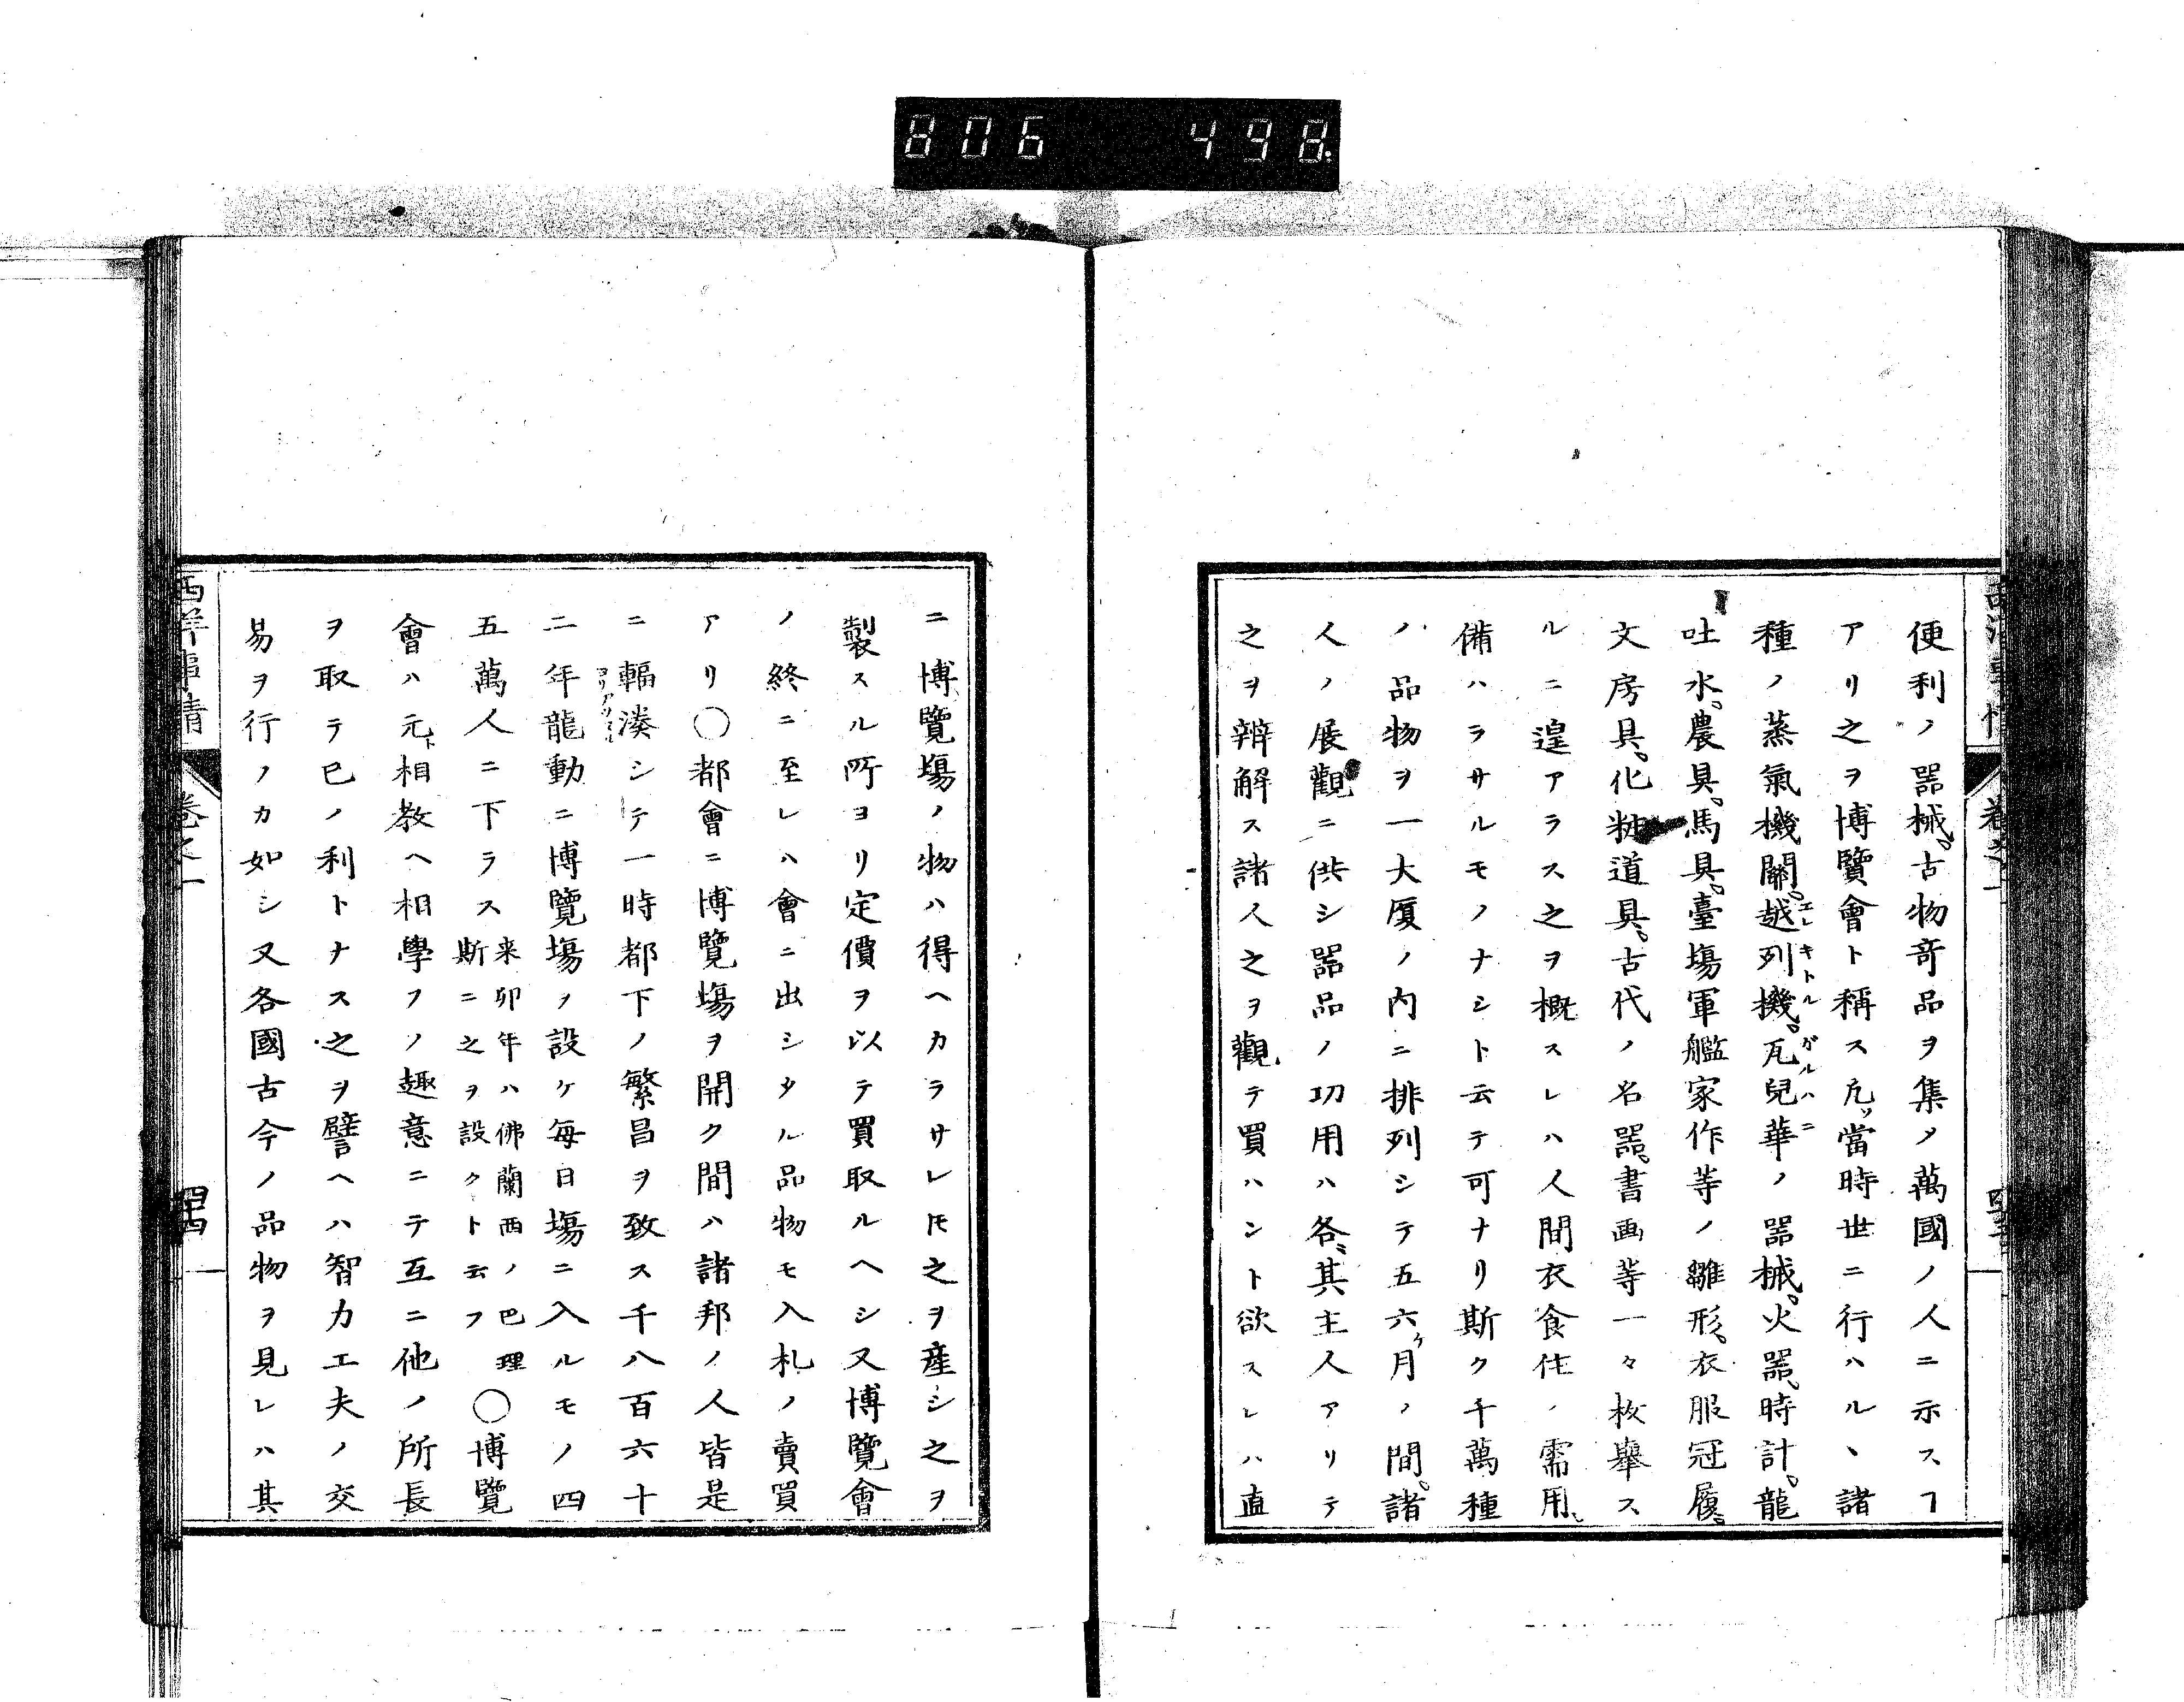 806 498.
便利ノ器械。古物竒品ヲ集メ萬國ノ人ニ示スヿ
アリ之ヲ博覽會ト稱ス凡ソ當時世ニ行ハルヽ諸
種ノ蒸氣機關。越列機。瓦兒華ノ器械。火器。時計。龍
エレキトル ガルハニ
吐水。農具。馬具。臺場軍艦家作等ノ雛形。衣服冠履。
文房具。化粧道具。古代ノ名器。書画等一々枚擧ス
ルニ遑アラス之ヲ概スレハ人間衣食住ノ需用。
備ハラサルモノナシト云テ可ナリ斯ク千萬種
ノ品物ヲ一大厦ノ内ニ排列シテ五六ケ月ノ間。諸
人ノ展觀ニ供シ器品ノ功用ハ各〻其主人アリテ
之ヲ辨解ス諸人之ヲ觀テ買ハント欲スレハ直
ニ博覽塲ノ物ハ得ヘカラサレ𪜈之ヲ産シ之ヲ
製スル所ヨリ定價ヲ以テ買取ルヘシ又博覽會
ノ終ニ至レハ會ニ出シタル品物モ入札ノ賣買
アリ〇都會ニ博覽塲ヲ開ク間ハ諸邦ノ人皆是
ニ輻湊シテ一時都下ノ繁昌ヲ致ス千八百六十
二年龍動ニ博覽塲ノ設ケ每日塲ニ入ルモノ四
五萬人ニ下ラス
来卯年ハ佛蘭西ノ巴理
斯ニ之ヲ設クト云フ
〇博覽
會ハ元ト相教ヘ相學フノ趣意ニテ互ニ他ノ所長
ヲ取テ已ノ利トナス之ヲ譬ヘハ智力工夫ノ交
易ヲ行ノカ如シ又各國古今ノ品物ヲ見レハ其
西洋事情 卷之一 四十四